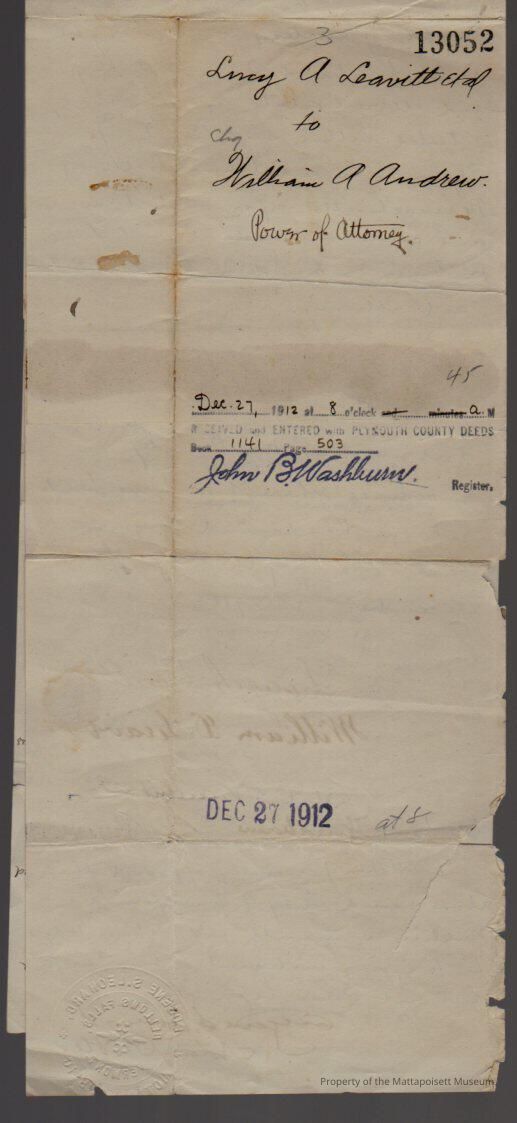 3
13052
Lucy A Leavitt et al
to
chg
William A Andrew.
Power of Attorney.
45
Dec. 27, 1912 at 8 o'clock and minutes a. M
RECEIVED and ENTERED with PLYMOUTH COUNTY DEEDS
Book 1141 Page 503
John B. Washburn.
Register.
William
DEC 27 1912 at 8
EUGENE S. LEONARD
BELLOWS FALLS
VERMONT
Property of the Mattapoisett Museum